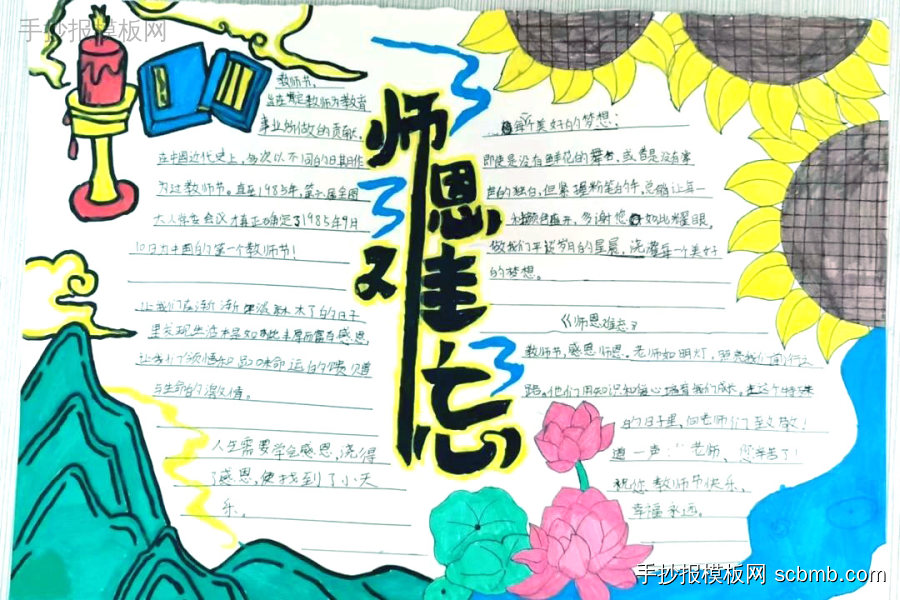 手抄报模板网
教师节,
旨在肯定教师为教育
事业所做的贡献,
在中国近代史上,多次以不同的日期作
为过教师节。直至1985年,第六届全国
人大常委会议才真正确定了1985年9月
10日为中国的第一个教师节!
让我们在渐渐麻木了的日子
里发现生活本是如此丰厚而富有感恩,
让我们领悟和品味命运的馈赠
与生命的激情。
人生需要学会感恩,
了感恩,便找到了小天
乐。
师恩难忘
每个美好的梦想:
即使是没有鲜花的舞台,或者是没有掌
声的独白,但紧握粉笔的手,总能让每一
颜色盛开,多谢您如此耀眼,
做我们平淡岁月的星晨,浇灌每一个美好
的梦想。
《师恩难忘》
教师节,感恩师恩。老师如明灯,照亮我们前行之
路。他们用知识和爱心培育我们成长。在这个特殊
的日子里,向老师们致敬!
道一声:“老师,您辛苦了!
祝您教师节快乐,
幸福永远。
手抄报模板网 scbmb.com